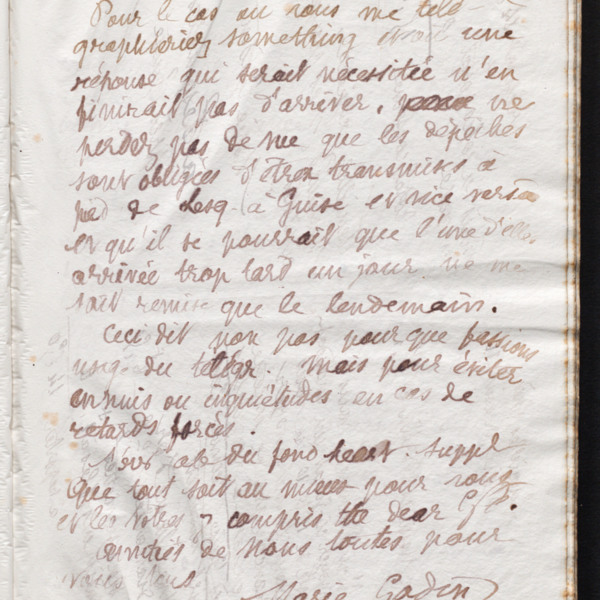 Pour le cas où vous me télé-
graphieriez something une
réponse qui serait nécessitée n'en
finirait pas d'arriver, ne
perdez pas de vue que les dépêches
sont obligées d'être transmises à
pied de Lesq. à Guise et vice versa
et qu'il se pourrait que l'une d'elles
arrivée trop tard un jour ne me
soit remise que le lendemain.
Ceci dit non pas pour que fassions
usage du télégr. mais pour éviter
ennuis ou inquiétudes en cas de
retards forcés.
du fond heart suppl
que tout soit au mieux pour vous
et les vôtres y compris the dear
amitiés de nous toutes pour
vous
Marie Godin